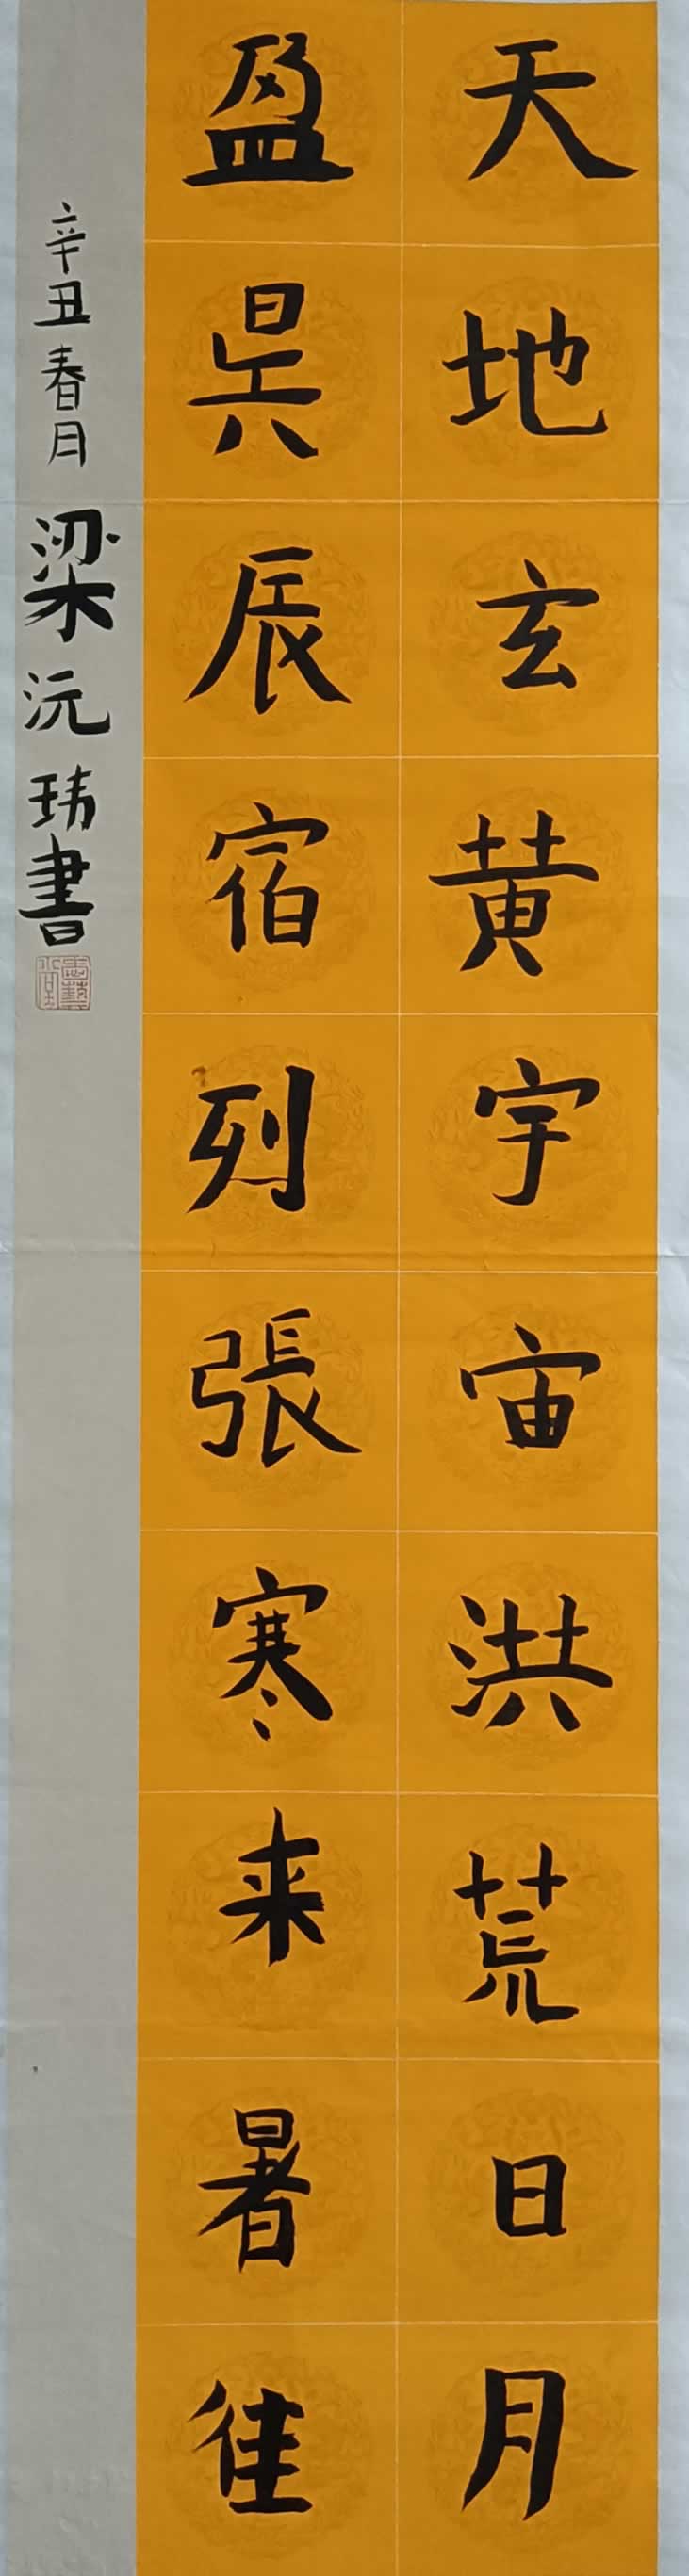 天地玄黄宇宙洪荒日月
盈昃辰宿列張寒来暑往
辛丑春月梁沅玮書